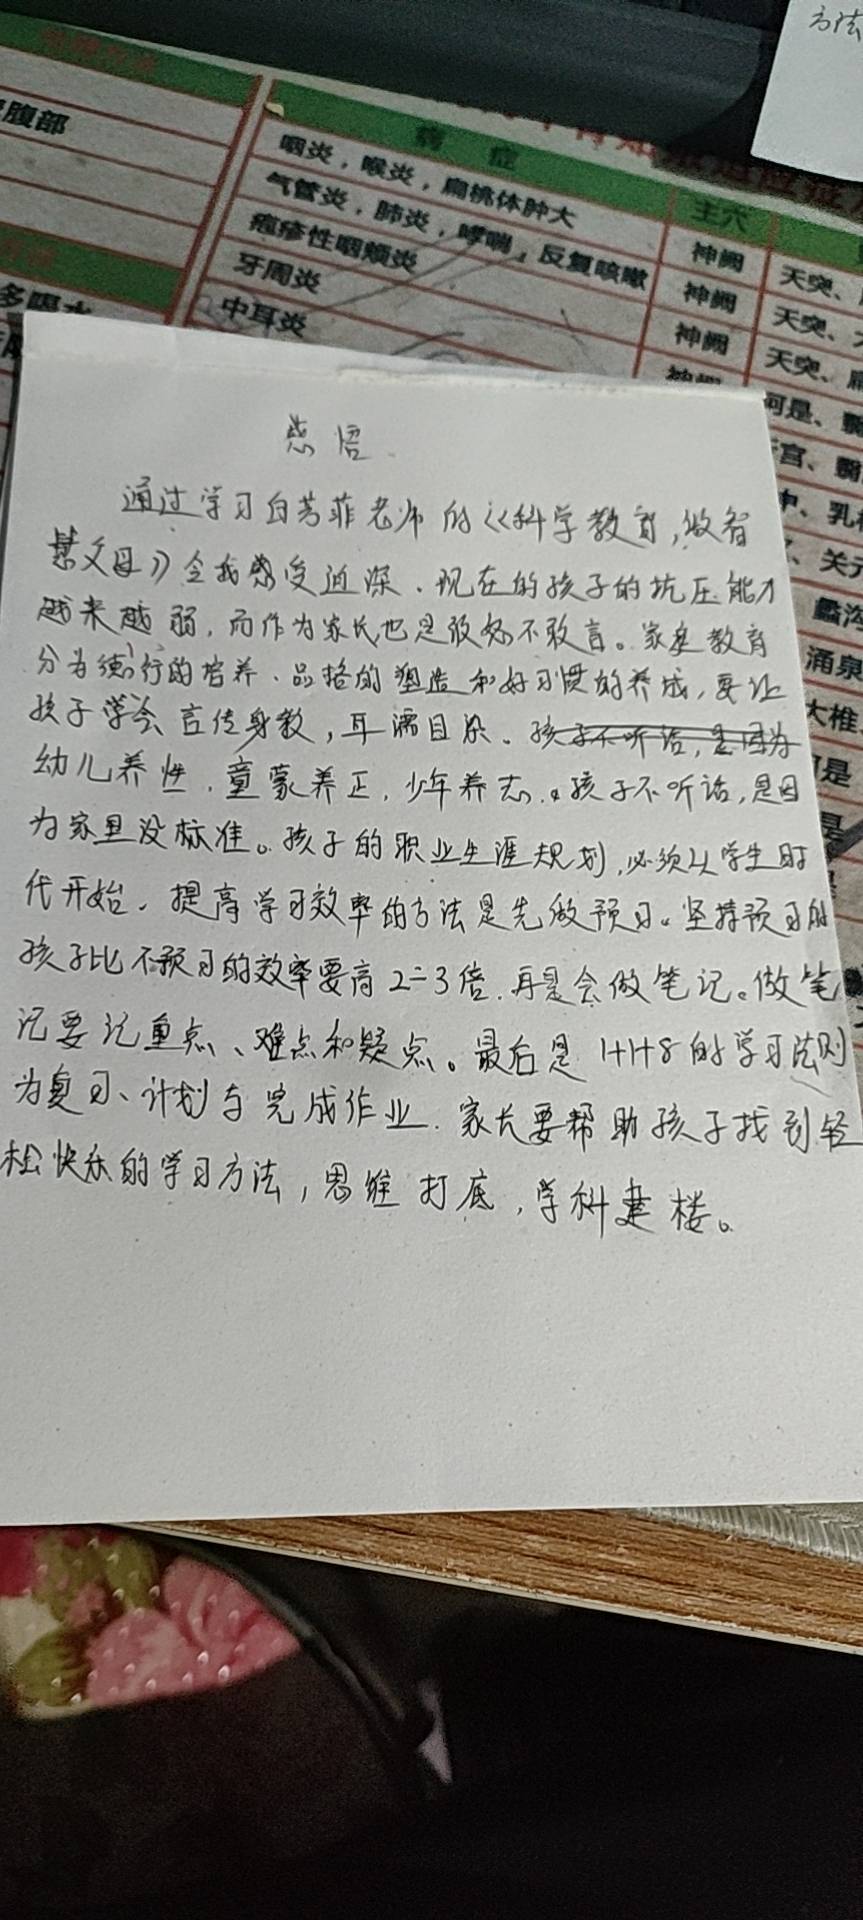 方法
腹部
病 症
主穴
咽炎，喉炎，扁桃体肿大
神阙
天突、
气管炎，肺炎，哮喘，反复咳嗽
神阙
天突、
疱疹性咽颊炎
神阙
天突、
牙周炎
神阙
阿是、
中耳炎
多喝水
中、乳
关元
蠡沟
涌泉
大椎
感悟
通过学习白芳菲老师的《科学教育，做智
慧父母》令我感受迫深、现在的孩子的抗压能力
越来越弱，而作为家长也是敢怒不敢言。家庭教育
分为德行的培养、品格的塑造和好习惯的养成，要让
孩子学会言传身教，耳濡目染。孩子不听话，是因为
幼儿养性，童蒙养正，少年养志。孩子不听话，是因
为家里没标准。孩子的职业生涯规划，必须从学生时
代开始。提高学习效率的方法是先做预习。坚持预习的
孩子比不预习的效率要高2-3倍．再是会做笔记。做笔
记要记重点、难点和疑点。最后是1+1+8的学习法则
为复习、计划与完成作业．家长要帮助孩子找到轻
松快乐的学习方法，思维打底，学科建楼。